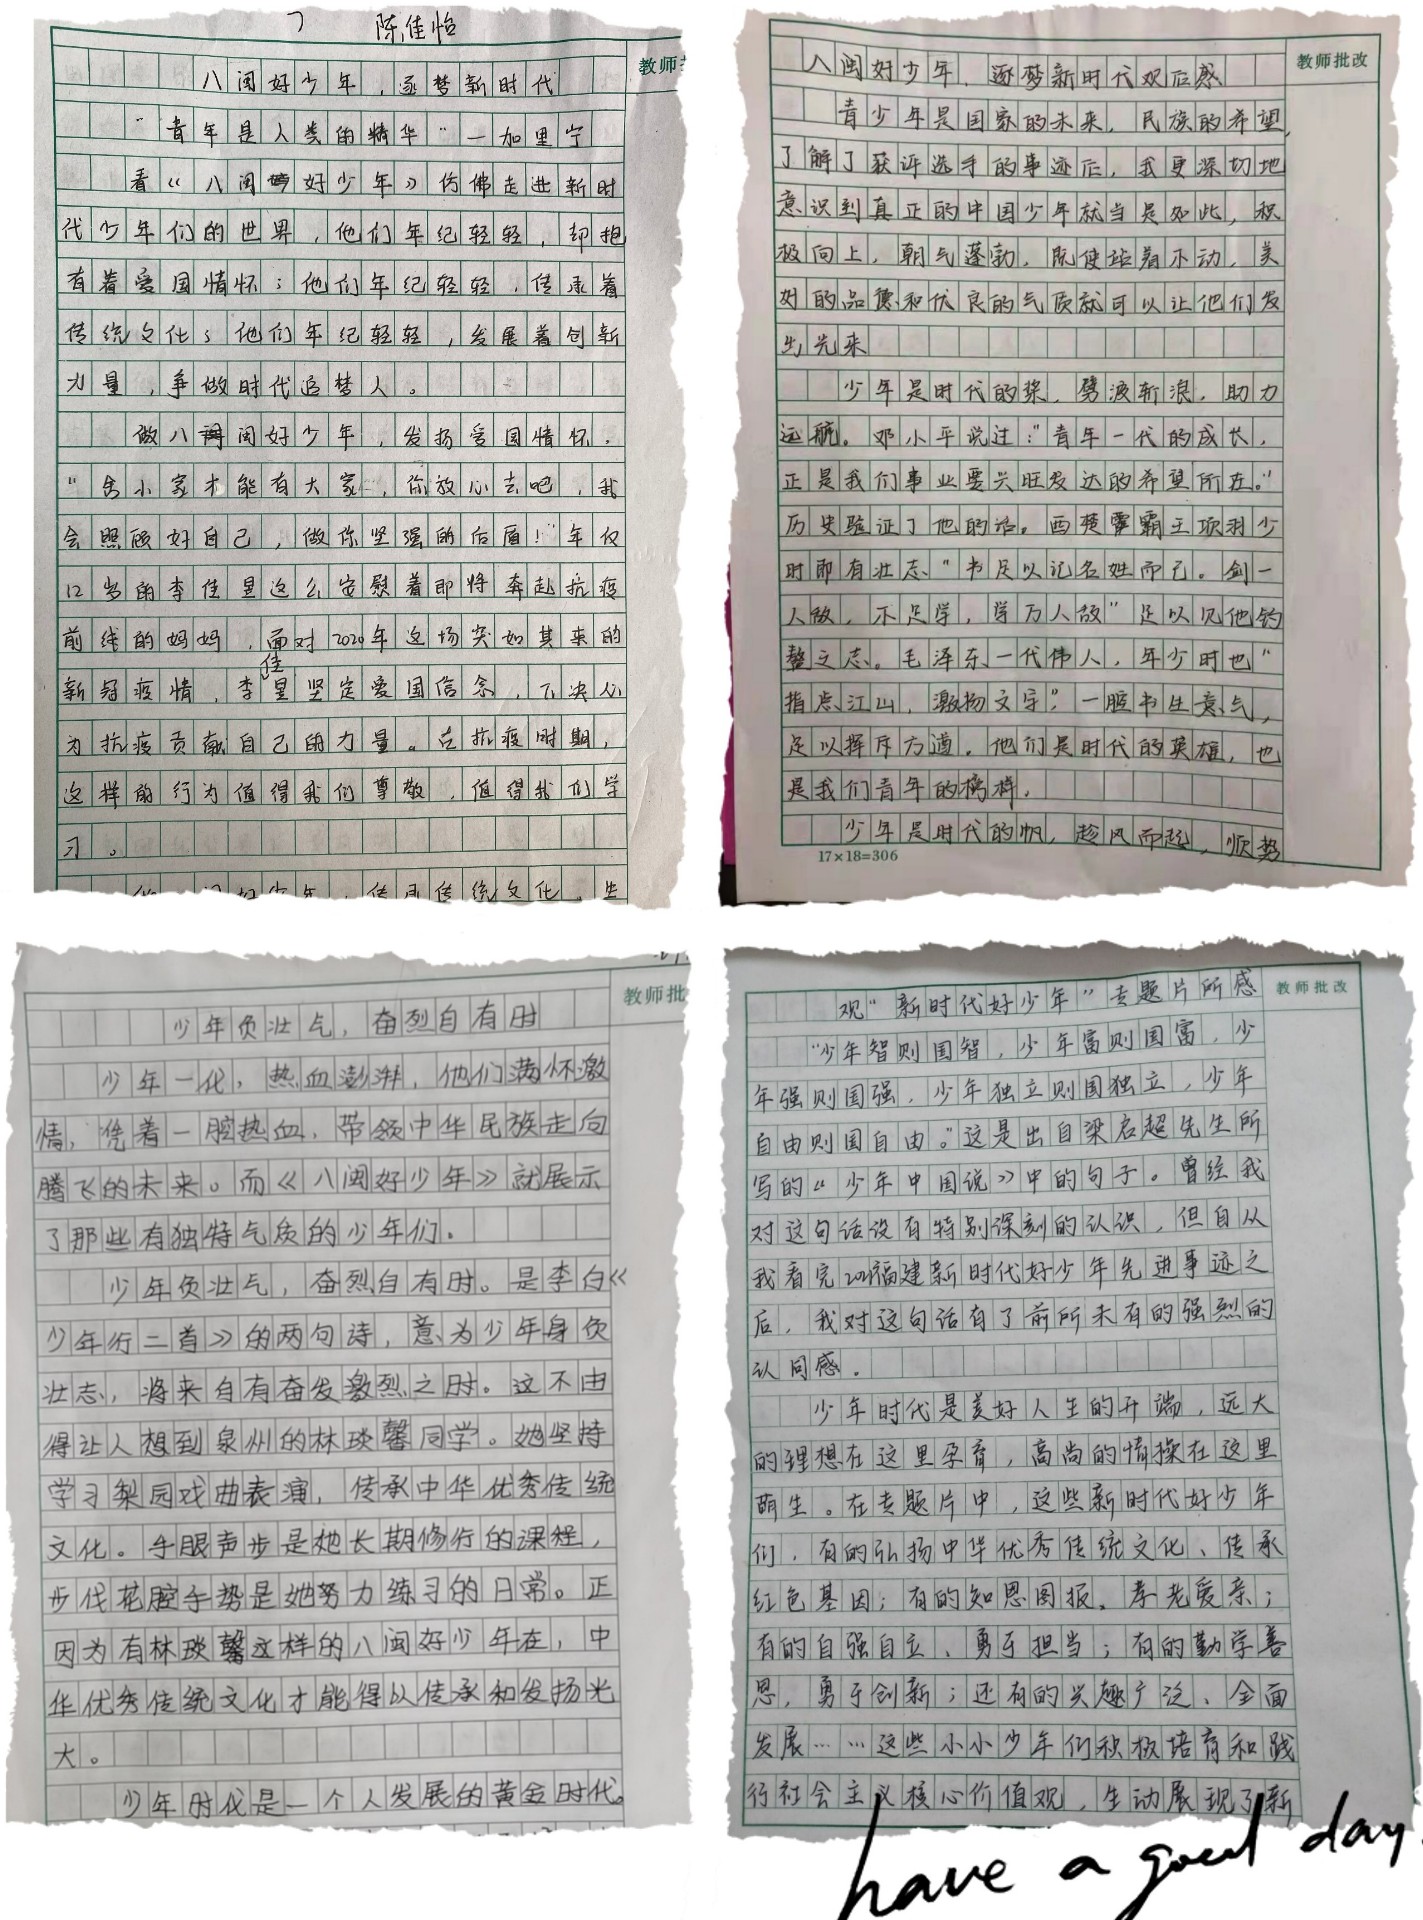 陈佳怡
教师
八闽好少年，逐梦新时代
“青年是人类的精华”一加里宁
看《八闽好少年》仿佛走进新时
代少年们的世界，他们年纪轻轻，却抱
有着爱国情怀；他们年纪轻轻，传承着
传统文化；他们年纪轻轻，发展着创新
力量，争做时代追梦人。
做八闽好少年，发扬爱国情怀。
“舍小家才能有大家，你放心去吧，我
会照顾好自己，做你坚强的后盾！”年仅
12岁的李佳星这么安慰着即将奔赴抗疫
前线的妈妈，面对2020年这场突如其来的
新冠疫情，李佳星坚定爱国信念，下决心
为抗疫贡献自己的力量。在抗疫时期，
这样的行为值得我们尊敬，值得我们学
习。
好少年，传承传统文化。生
教师批改
八闽好少年，逐梦新时代观后感
青少年是国家的未来，民族的希望，
了解了获评选手的事迹后，我更深切地
意识到真正的中国少年就当是如此，积
极向上，朝气蓬勃，既使站着不动，美
好的品德和优良的气质就可以让他们发
出光来
少年是时代的桨，劈波斩浪，助力
远航。邓小平说过：“青年一代的成长，
正是我们事业要兴旺发达的希望所在。”
历史验证了他的话。西楚霸王项羽少
时即有壮志“书足以记名姓而已。剑一
人敌，不足学，学万人敌”足以见他的
鳌之志。毛泽东一代伟人，年少时也“
指点江山，激扬文字”，一腔书生意气，
足以挥斥方遒。他们是时代的英雄，也
是我们青年的榜样。
少年是时代的帆，趁风而起，顺势
17×18=306
教师批
少年负壮气，奋烈自有时
少年一代，热血澎湃，他们满怀激
情，凭着一腔热血，带领中华民族走向
腾飞的未来。而《八闽好少年》就展示
了那些有独特气质的少年们。
少年负壮气，奋烈自有时。是李白《
少年行二首》的两句诗，意为少年身负
壮志，将来自有奋发激烈之时。这不由
得让人想到泉州的林琰馨同学。她坚持
学习梨园戏曲表演，传承中华优秀传统
文化。手眼声步是她长期修行的课程，
步伐花腔手势是她努力练习的日常。正
因为有林琰馨这样的八闽好少年在，中
华优秀传统文化才能得以传承和发扬光
大。
少年时代是一个人发展的黄金时代。
教师批改
观“新时代好少年”专题片所感
“少年智则国智，少年富则国富，少
年强则国强，少年独立则国独立，少年
自由则国自由。”这是出自梁启超先生所
写的《少年中国说》中的句子。曾经我
对这句话没有特别深刻的认识，但自从
我看完2021福建新时代好少年先进事迹之
后，我对这句话有了前所未有的强烈的
认同感。
少年时代是美好人生的开端，远大
的理想在这里孕育，高尚的情操在这里
萌生。在专题片中，这些新时代好少年
们，有的弘扬中华优秀传统文化、传承
红色基因；有的知恩图报、孝老爱亲；
有的自强自立、勇于担当；有的勤学善
思，勇于创新；还有的兴趣广泛、全面
发展……这些小小少年们积极培育和践
行社会主义核心价值观，生动展现了新
have a good day.